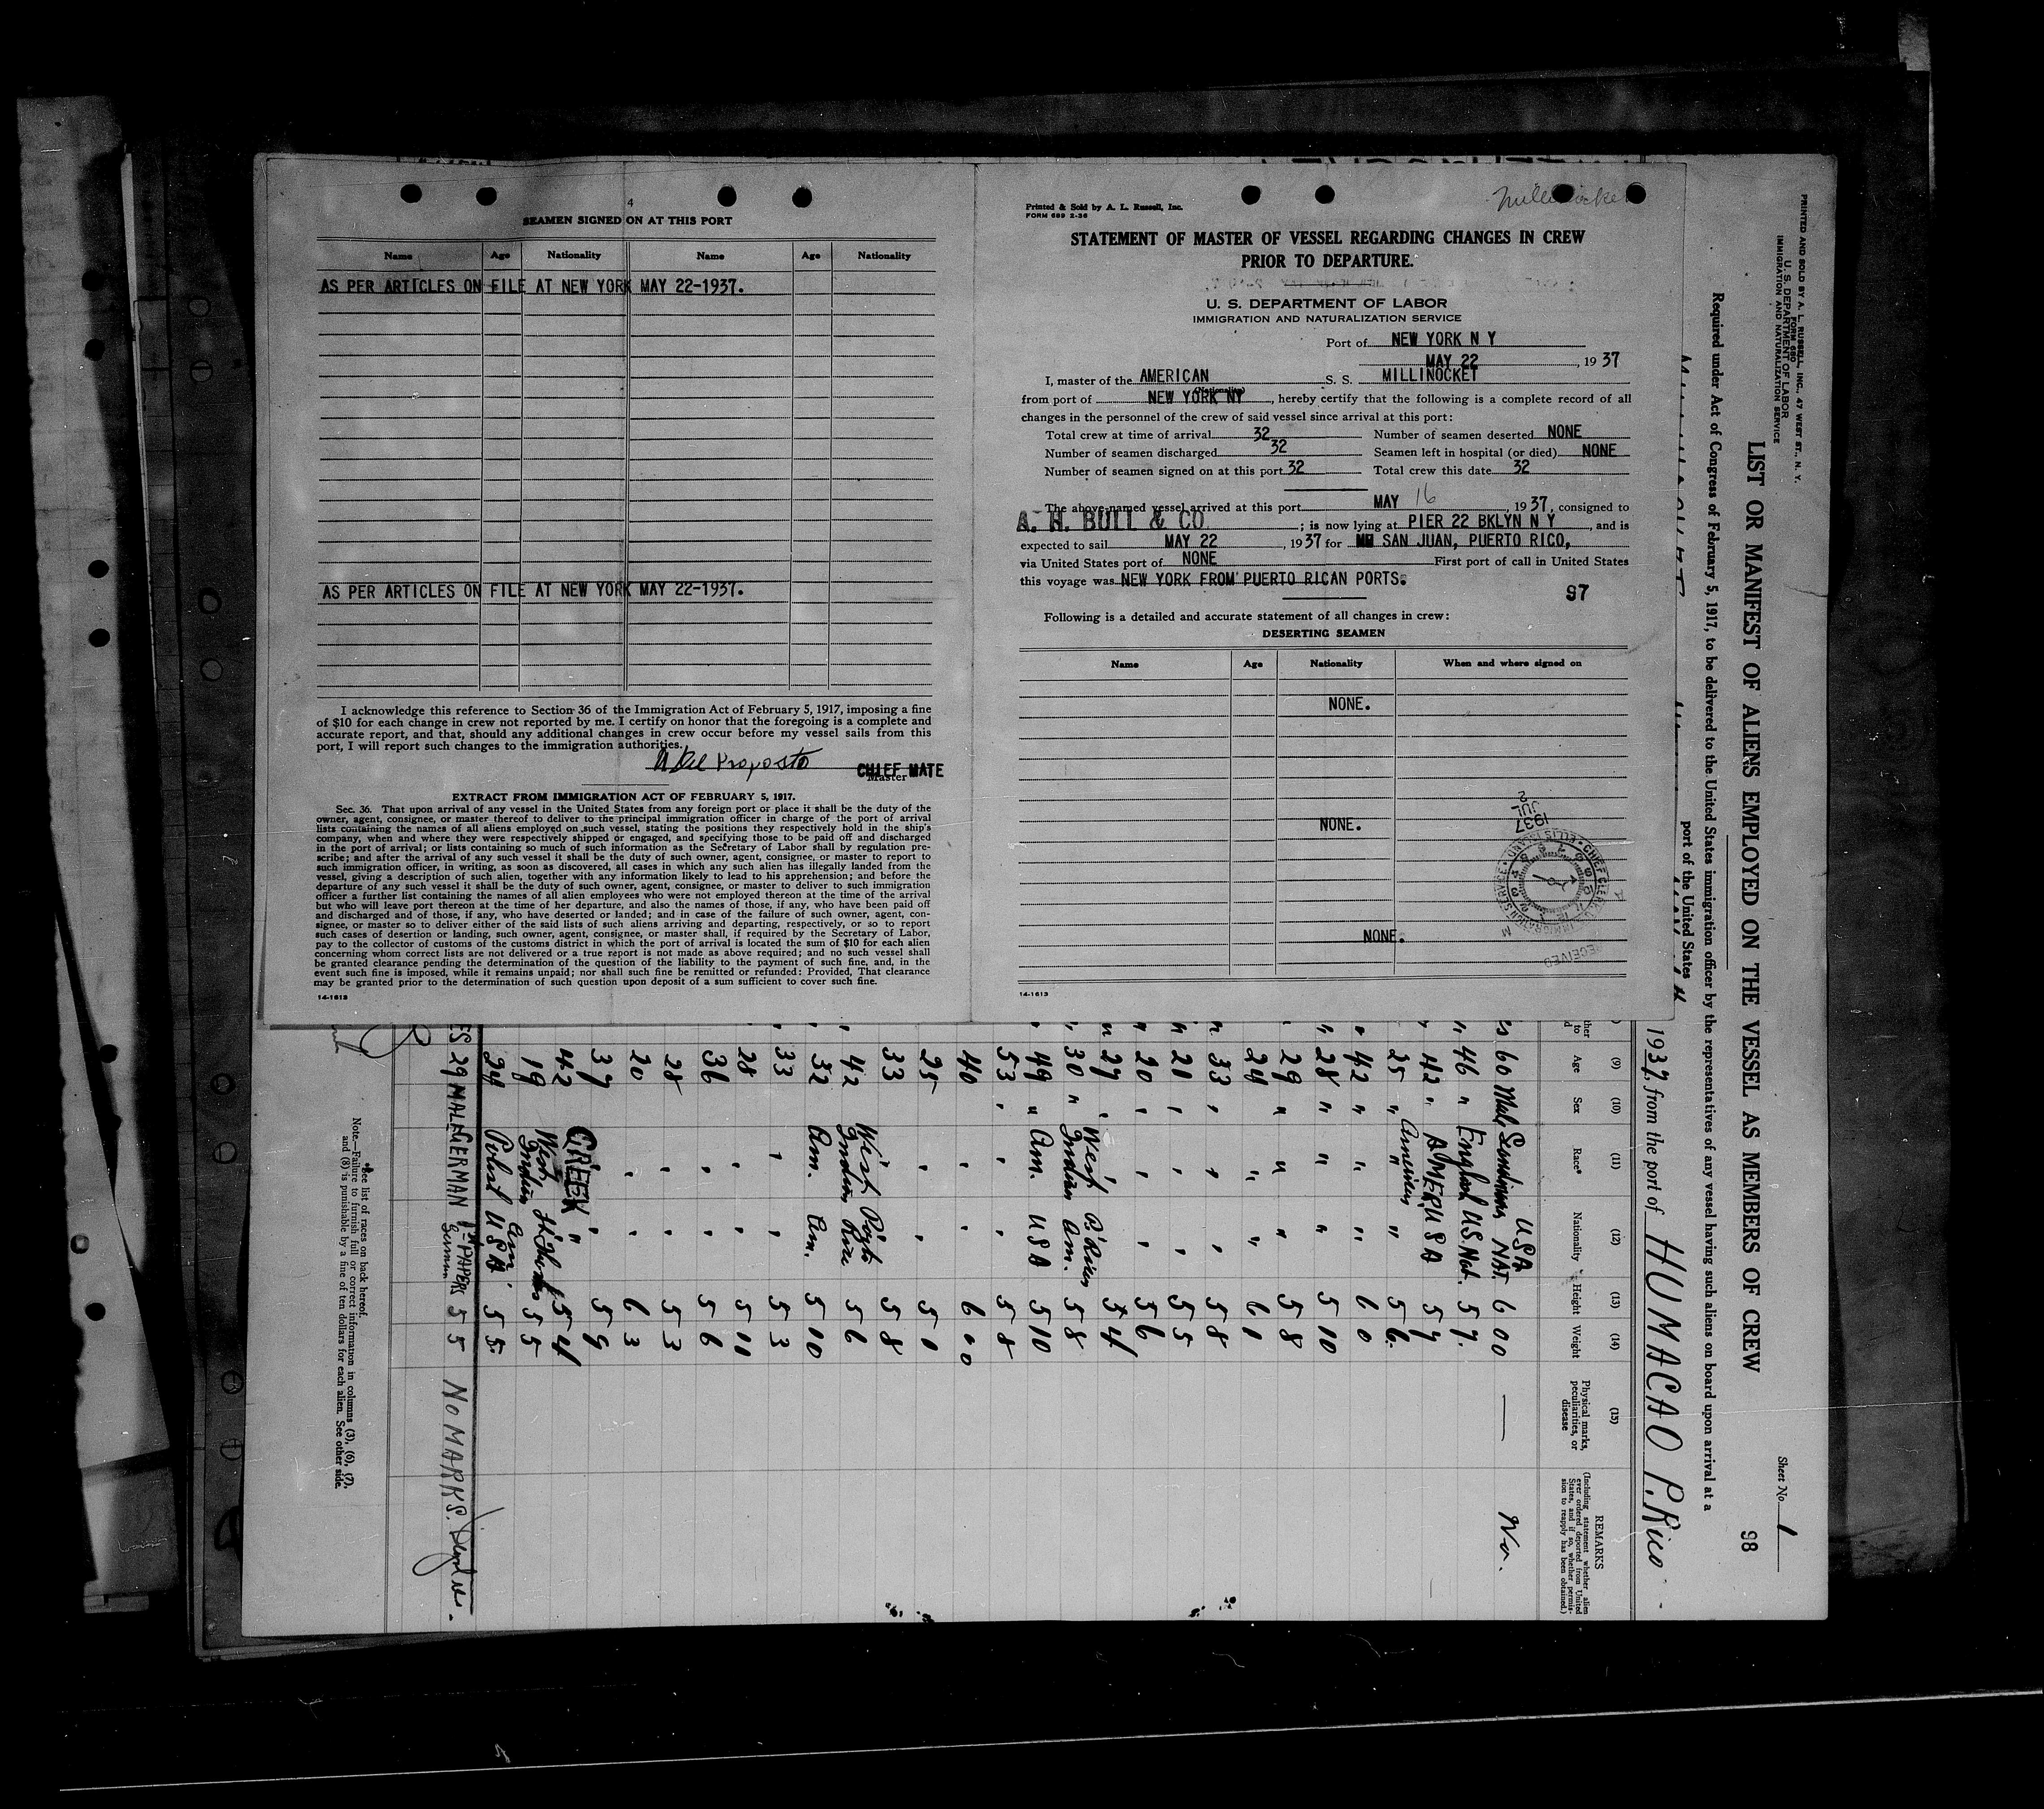 4
SEAMEN SIGNED ON AT THIS PORT
Name Age Nationality Name Age Nationality
AS PER ARTICLES ON FILE AT NEW YORK MAY 22-1937.
AS PER ARTICLES ON FILE AT NEW YORK MAY 22-1937.
I acknowledge this reference to Section 36 of the Immigration Act of February 5, 1917, imposing a fine
of $10 for each change in crew not reported by me. I certify on honor that the foregoing is a complete and
accurate report, and that, should any additional changes in crew occur before my vessel sails from this
port, I will report such changes to the immigration authorities.
CHIEF MATE
Master
EXTRACT FROM IMMIGRATION ACT OF FEBRUARY 5, 1917.
Sec. 36. That upon arrival of any vessel in the United States from any foreign port or place it shall be the duty of the
owner, agent, consignee, or master thereof to deliver to the principal immigration officer in charge of the port of arrival
lists containing the names of all aliens employed on such vessel, stating the positions they respectively hold in the ship's
company, when and where they were respectively shipped or engaged, and specifying those to be paid off and discharged
in the port of arrival; or lists containing so much of such information as the Secretary of Labor shall by regulation pre-
scribe; and after the arrival of any such vessel it shall be the duty of such owner, agent, consignee, or master to report to
such immigration officer, in writing, as soon as discovered, all cases in which any such alien has illegally landed from the
vessel, giving a description of such alien, together with any information likely to lead to his apprehension; and before the
departure of any such vessel it shall be the duty of such owner, agent, consignee, or master to deliver to such immigration
officer a further list containing the names of all alien employees who were not employed thereon at the time of the arrival
but who will leave port thereon at the time of her departure, and also the names of those, if any, who have been paid off
and discharged and of those, if any, who have deserted or landed; and in case of the failure of such owner, agent, con-
signee, or master so to deliver either of the said lists of such aliens arriving and departing, respectively, or so to report
such cases of desertion or landing, such owner, agent, consignee, or master shall, if required by the Secretary of Labor,
pay to the collector of customs of the customs district in which the port of arrival is located the sum of $10 for each alien
concerning whom correct lists are not delivered or a true report is not made as above required; and no such vessel shall
be granted clearance pending the determination of the question of the liability to the payment of such fine, and, in the
event such fine is imposed, while it remains unpaid; nor shall such fine be remitted or refunded: Provided, That clearance
may be granted prior to the determination of such question upon deposit of a sum sufficient to cover such fine.
14-1613
Millinocket
Printed & Sold by A. L. Russell, Inc.
FORM 689 2-36
STATEMENT OF MASTER OF VESSEL REGARDING CHANGES IN CREW
PRIOR TO DEPARTURE.
U. S. DEPARTMENT OF LABOR
IMMIGRATION AND NATURALIZATION SERVICE
Port of NEW YORK N Y
MAY 22, 1937
I, master of the AMERICAN S. S. MILLINOCKET
(Nationality)
from port of NEW YORK NY, hereby certify that the following is a complete record of all
changes in the personnel of the crew of said vessel since arrival at this port:
Total crew at time of arrival 32 Number of seamen deserted NONE
Number of seamen discharged 32 Seamen left in hospital (or died) NONE
Number of seamen signed on at this port 32 Total crew this date 32
The above-named vessel arrived at this port MAY 16, 1937, consigned to
A. H. BULL & CO; is now lying at PIER 22 BKLYN N Y, and is
expected to sail MAY 22, 1937 for SAN JUAN, PUERTO RICO,
via United States port of NONE First port of call in United States
this voyage was NEW YORK FROM PUERTO RICAN PORTS.
97
Following is a detailed and accurate statement of all changes in crew:
DESERTING SEAMEN
Name Age Nationality When and where signed on
NONE.
NONE.
NONE.
1937
RECEIVED
14-1613
PRINTED AND SOLD BY A. L. RUSSELL, INC., 47 WEST ST., N. Y.
FORM 680
U. S. DEPARTMENT OF LABOR
IMMIGRATION AND NATURALIZATION SERVICE
Sheet No. 1
98
LIST OR MANIFEST OF ALIENS EMPLOYED ON THE VESSEL AS MEMBERS OF CREW
Required under Act of Congress of February 5, 1917, to be delivered to the United States immigration officer by the representatives of any vessel having such aliens on board upon arrival at a
port of the United States
1937, from the port of HUMACAO P. Rico
(9) (10) (11) (12) (13) (14) (15)
Age Sex Race* Nationality Height Weight Physical marks, peculiarities, or disease
REMARKS
(Including statement whether alien
ever ordered deported from United
States, and if so, whether permis-
sion to reapply has been obtained.)
60 Male USA NAT. 6 00 — No.
46 " English U.S. Nat. 5 7
42 " AMER. USA 5 7
25 " American " 5 6
42 " " " 6 0
28 " " " 5 10
29 " " " 5 8
24 " " 6 1
33 " " " 5 8
21 " " " 5 5
20 " " " 5 6
27 " West P. Rico 5 4
30 " Indian Am. 5 8
49 " Am. USA 5 10
53 " " " 5 8
40 " " 6 0
25 " " 5 1
33 5 8
42 West Porto 5 6
Indian Rico
32 Am. Am. 5 10
33 " " 5 3
28 " " 5 11
36 " " 5 6
28 " " 5 3
20 " " 6 3
37 " 5 9
42 GREEK " 5 4
19 West Indian 5 5
24 Polish USA 5 5
29 MALE GERMAN 1st PAPERS 5 5 NO MARKS.
German
*See list of races on back hereof.
Note.—Failure to furnish full or correct information in columns (3), (6), (7),
and (8) is punishable by a fine of ten dollars for each alien. See other side.